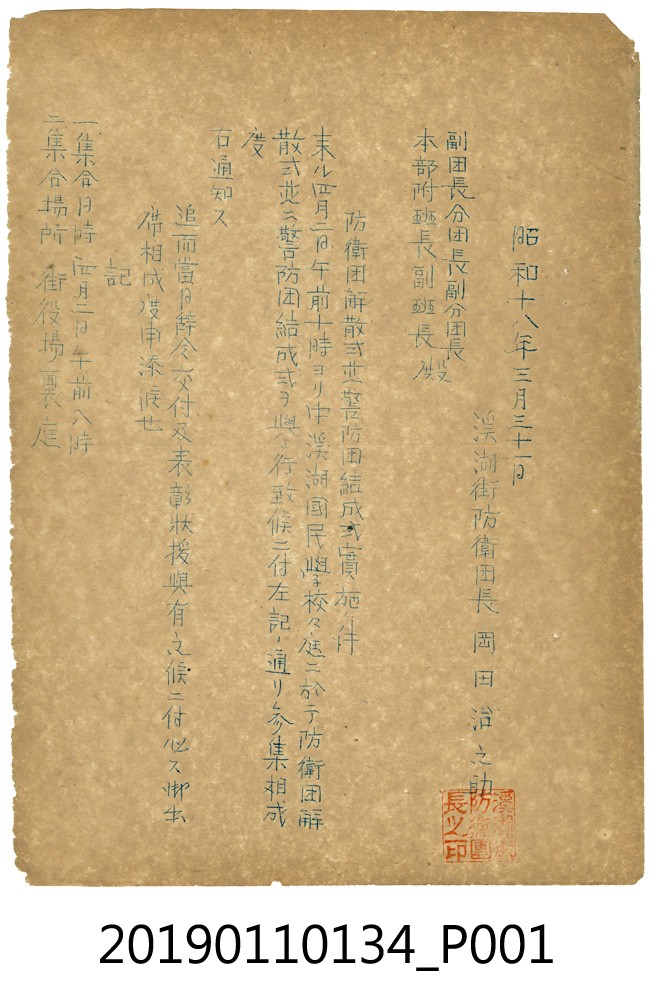 昭和十八年三月三十一日
渓湖街防衛団長 岡田治之助
副団長分団長副分団長
本部附班長副班長殿
防衛団解散式並警防団結成式實施ノ件
来ル四月二日午前十時ヨリ中渓湖國民學校々庭ニ於テ防衛団解
散式並ニ警防団結成式ヲ擧行致候ニ付左記ノ通リ参集相成
度
右通知ス
追而當日辞令交付及表彰狀授與有之候ニ付必ス御出
席相成度申添候也
記
一集合日時 四月二日午前八時
二集合場所 街役場裏庭
溪湖街
防衛團
長之印
20190110134_P001